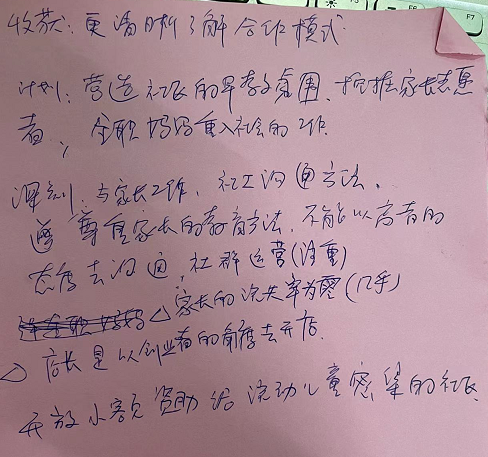 收获：更清晰了解合作模式
计划：营造社区的早教氛围，挖掘家长志愿
者，全职妈妈重入社会的工作.
深刻：与家长工作、社工沟通方法、
尊重家长的教育方法，不能以高者的
态度去沟通，社群运营(注重)
△家长的流失率为零(几乎)
△店长是以创业者的角度去开店.
开放小额资助给流动儿童密集的社区
F7